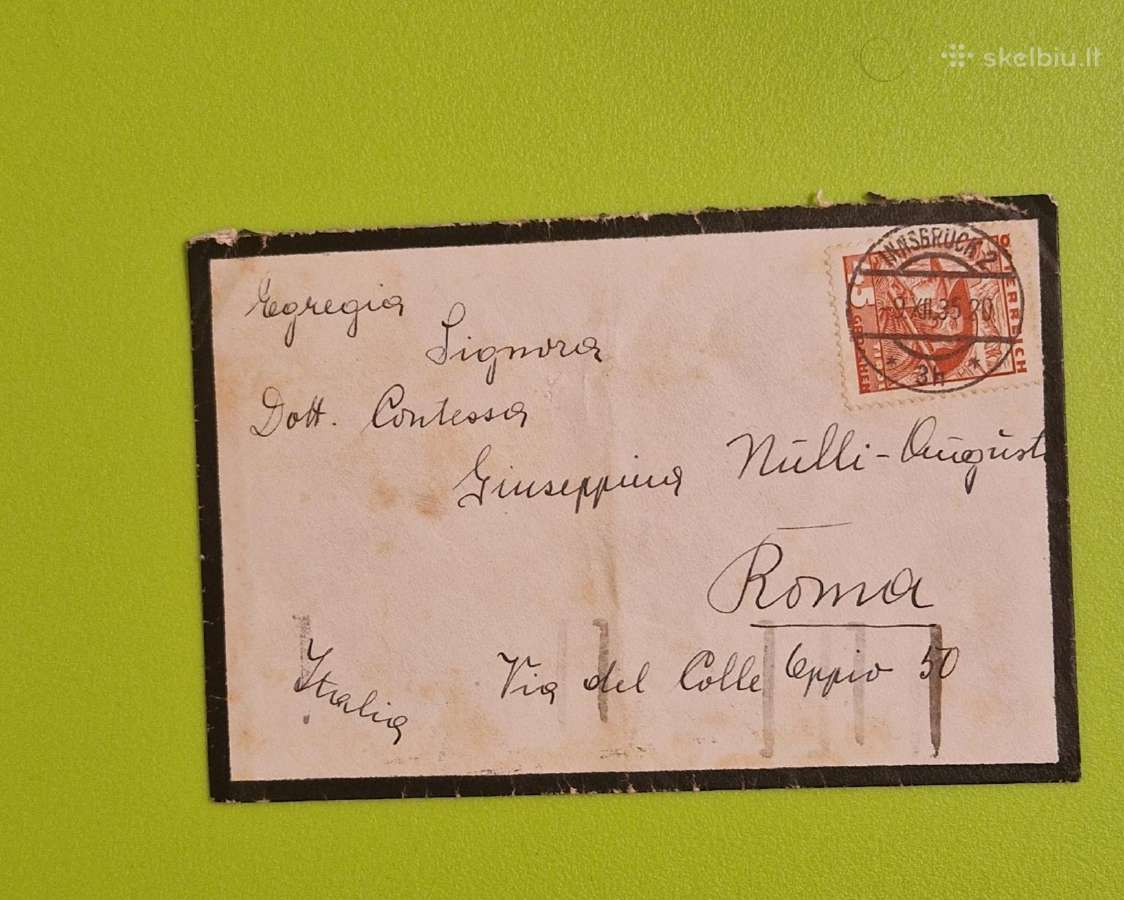 skelbiu.lt
INNSBRUCK 2
XII.35 20
* 3h *
ERREICH
Egregia
Signora
Dott. Contessa
Giuseppina Nŭlli-Aŭgŭst
Roma
Via del Colle Oppio 50
Italia